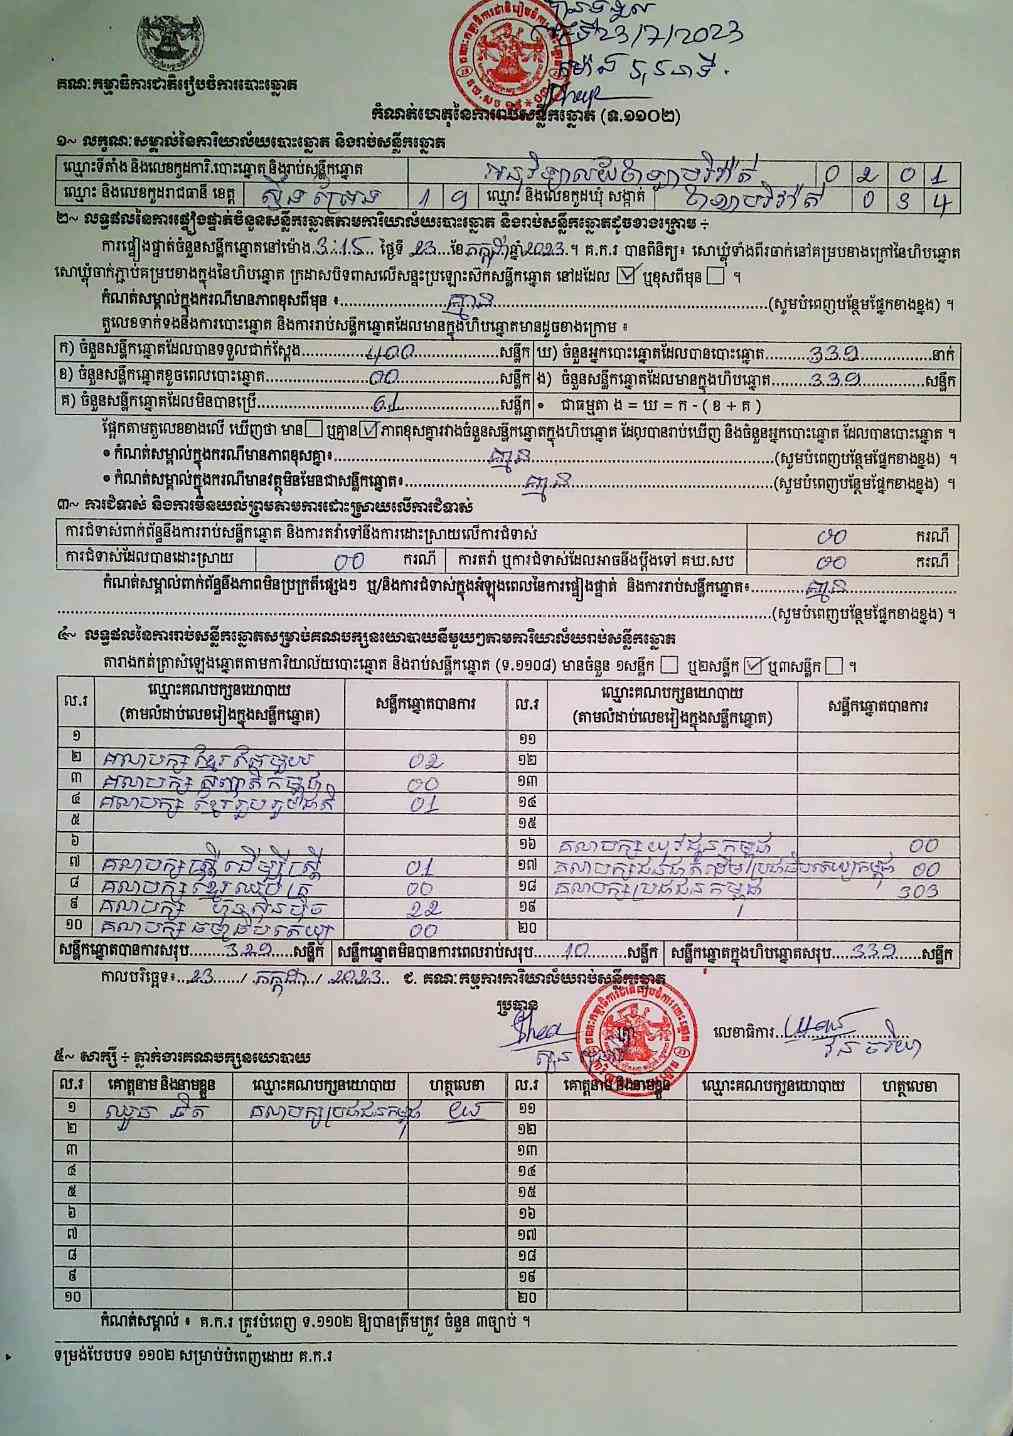 គណៈកម្មាធិការជាតិរៀបចំការបោះឆ្នោត
ថ្ងៃទី23/7/2023
កំណត់ហេតុនៃការរាប់សន្លឹកឆ្នោត (ទ.១១០២)
១~ លក្ខណៈសម្គាល់នៃការិយាល័យបោះឆ្នោត និងរាប់សន្លឹកឆ្នោត
ឈ្មោះទីតាំង និងលេខកូដការិ.បោះឆ្នោត និងរាប់សន្លឹកឆ្នោត 0 2 0 1
ឈ្មោះ និងលេខកូដរាជធានី ខេត្ត ស្ទឹងត្រែង 1 9 ឈ្មោះ និងលេខកូដឃុំ សង្កាត់ 0 3 4
២~ លទ្ធផលនៃការផ្ទៀងផ្ទាត់ចំនួនសន្លឹកឆ្នោតតាមការិយាល័យបោះឆ្នោត និងរាប់សន្លឹកឆ្នោតដូចខាងក្រោម ÷
ការផ្ទៀងផ្ទាត់ចំនួនសន្លឹកឆ្នោតនៅម៉ោង.3:15.. ថ្ងៃទី 23...ខែកក្កដាឆ្នាំ2023.។ គ.ក.រ បានពិនិត្យ៖ សោឃ្លុំទាំងពីរចាក់នៅគម្របខាងក្រៅនៃហិបឆ្នោត
សោឃ្លុំចាក់ភ្ជាប់គម្របខាងក្នុងនៃហិបឆ្នោត ក្រដាសបិទពាសលើសន្ទះប្រឡោះស៊កសន្លឹកឆ្នោត នៅដដែល ☑ ឬខុសពីមុន ☐ ។
កំណត់សម្គាល់ក្នុងករណីមានភាពខុសពីមុន ៖ គ្មាន (សូមបំពេញបន្ថែមផ្នែកខាងខ្នង) ។
តួលេខទាក់ទងនឹងការបោះឆ្នោត និងការរាប់សន្លឹកឆ្នោតដែលមានក្នុងហិបឆ្នោតមានដូចខាងក្រោម ៖
ក) ចំនួនសន្លឹកឆ្នោតដែលបានទទួលជាក់ស្តែង 400 សន្លឹក ឃ) ចំនួនអ្នកបោះឆ្នោតដែលបានបោះឆ្នោត 339 នាក់
ខ) ចំនួនសន្លឹកឆ្នោតខូចពេលបោះឆ្នោត 00 សន្លឹក ង) ចំនួនសន្លឹកឆ្នោតដែលមានក្នុងហិបឆ្នោត 339 សន្លឹក
គ) ចំនួនសន្លឹកឆ្នោតដែលមិនបានប្រើ 61 សន្លឹក • ជាធម្មតា ង = ឃ = ក - ( ខ + គ )
ផ្អែកតាមតួលេខខាងលើ ឃើញថា មាន ☐ ឬគ្មាន ☑ ភាពខុសគ្នារវាងចំនួនសន្លឹកឆ្នោតក្នុងហិបឆ្នោត ដែលបានរាប់ឃើញ និងចំនួនអ្នកបោះឆ្នោត ដែលបានបោះឆ្នោត ។
• កំណត់សម្គាល់ក្នុងករណីមានភាពខុសគ្នា៖ គ្មាន (សូមបំពេញបន្ថែមផ្នែកខាងខ្នង) ។
• កំណត់សម្គាល់ក្នុងករណីមានវត្ថុមិនមែនជាសន្លឹកឆ្នោត៖ គ្មាន (សូមបំពេញបន្ថែមផ្នែកខាងខ្នង) ។
៣~ ការជំទាស់ និងការមិនយល់ព្រមតាមការដោះស្រាយលើការជំទាស់
ការជំទាស់ពាក់ព័ន្ធនឹងការរាប់សន្លឹកឆ្នោត និងការតវ៉ាទៅនឹងការដោះស្រាយលើការជំទាស់ 00 ករណី
ការជំទាស់ដែលបានដោះស្រាយ 00 ករណី ការតវ៉ា ឬការជំទាស់ដែលអាចនឹងប្តឹងទៅ គឃ.សប 00 ករណី
កំណត់សម្គាល់ពាក់ព័ន្ធនឹងភាពមិនប្រក្រតីផ្សេងៗ ឬ/និងការជំទាស់ក្នុងអំឡុងពេលនៃការផ្ទៀងផ្ទាត់ និងការរាប់សន្លឹកឆ្នោត៖ គ្មាន
(សូមបំពេញបន្ថែមផ្នែកខាងខ្នង) ។
៤~ លទ្ធផលនៃការរាប់សន្លឹកឆ្នោតសម្រាប់គណបក្សនយោបាយនីមួយៗតាមការិយាល័យរាប់សន្លឹកឆ្នោត
តារាងកត់ត្រាសំឡេងឆ្នោតតាមការិយាល័យបោះឆ្នោត និងរាប់សន្លឹកឆ្នោត (ទ.១១០៨) មានចំនួន ១សន្លឹក ☐ ឬ២សន្លឹក ☑ ឬ៣សន្លឹក ☐ ។
ល.រ ឈ្មោះគណបក្សនយោបាយ (តាមលំដាប់លេខរៀងក្នុងសន្លឹកឆ្នោត) សន្លឹកឆ្នោតបានការ ល.រ ឈ្មោះគណបក្សនយោបាយ (តាមលំដាប់លេខរៀងក្នុងសន្លឹកឆ្នោត) សន្លឹកឆ្នោតបានការ
១ ១១
២ គណបក្ស ខ្មែរតែមួយ 02 ១២
៣ គណបក្ស សញ្ជាតិកម្ពុជា 00 ១៣
៤ គណបក្ស ខ្មែររួបរួមជាតិ 01 ១៤
៥ ១៥
៦ ១៦ គណបក្សយុវជនកម្ពុជា 00
៧ គណបក្សស្ត្រីដើម្បីស្ត្រី 01 ១៧ គណបក្សជនជាតិដើមប្រជាធិបតេយ្យកម្ពុជា 00
៨ គណបក្ស ខ្មែរឈប់ក្រ 00 ១៨ គណបក្សប្រជាជនកម្ពុជា 303
៩ គណបក្ស ហ៊្វុនស៊ិនប៉ិច 22 ១៩
១០ គណបក្ស ធម្មាធិបតេយ្យ 00 ២០
សន្លឹកឆ្នោតបានការសរុប 329 សន្លឹក សន្លឹកឆ្នោតមិនបានការពេលរាប់សរុប 10 សន្លឹក សន្លឹកឆ្នោតក្នុងហិបឆ្នោតសរុប 339 សន្លឹក
កាលបរិច្ឆេទ៖ 23 / កក្កដា / 2023 ជ. គណៈកម្មការការិយាល័យរាប់សន្លឹកឆ្នោត
ប្រធាន
ត្រា លេខាធិការ
៥~ សាក្សី ÷ ភ្នាក់ងារគណបក្សនយោបាយ
ល.រ គោត្តនាម និងនាមខ្លួន ឈ្មោះគណបក្សនយោបាយ ហត្ថលេខា ល.រ គោត្តនាម និងនាមខ្លួន ឈ្មោះគណបក្សនយោបាយ ហត្ថលេខា
១ គណបក្សប្រជាជនកម្ពុជា ១១
២ ១២
៣ ១៣
៤ ១៤
៥ ១៥
៦ ១៦
៧ ១៧
៨ ១៨
៩ ១៩
១០ ២០
កំណត់សម្គាល់ ៖ គ.ក.រ ត្រូវបំពេញ ទ.១១០២ ឱ្យបានត្រឹមត្រូវ ចំនួន ៣ច្បាប់ ។
ទម្រង់បែបបទ ១១០២ សម្រាប់បំពេញដោយ គ.ក.រ